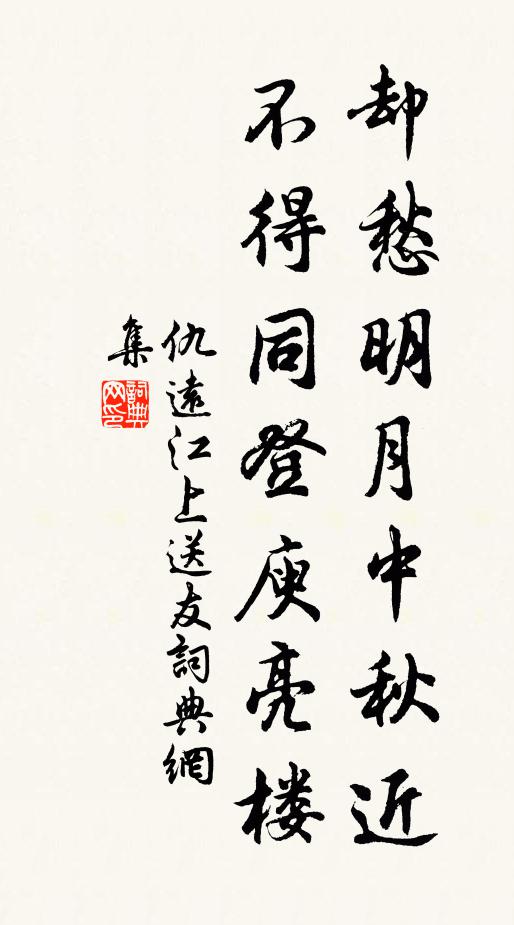 却愁明月中秋近
不得同登庾亮楼
仇遠江上送友詞典網
集
詞典网印